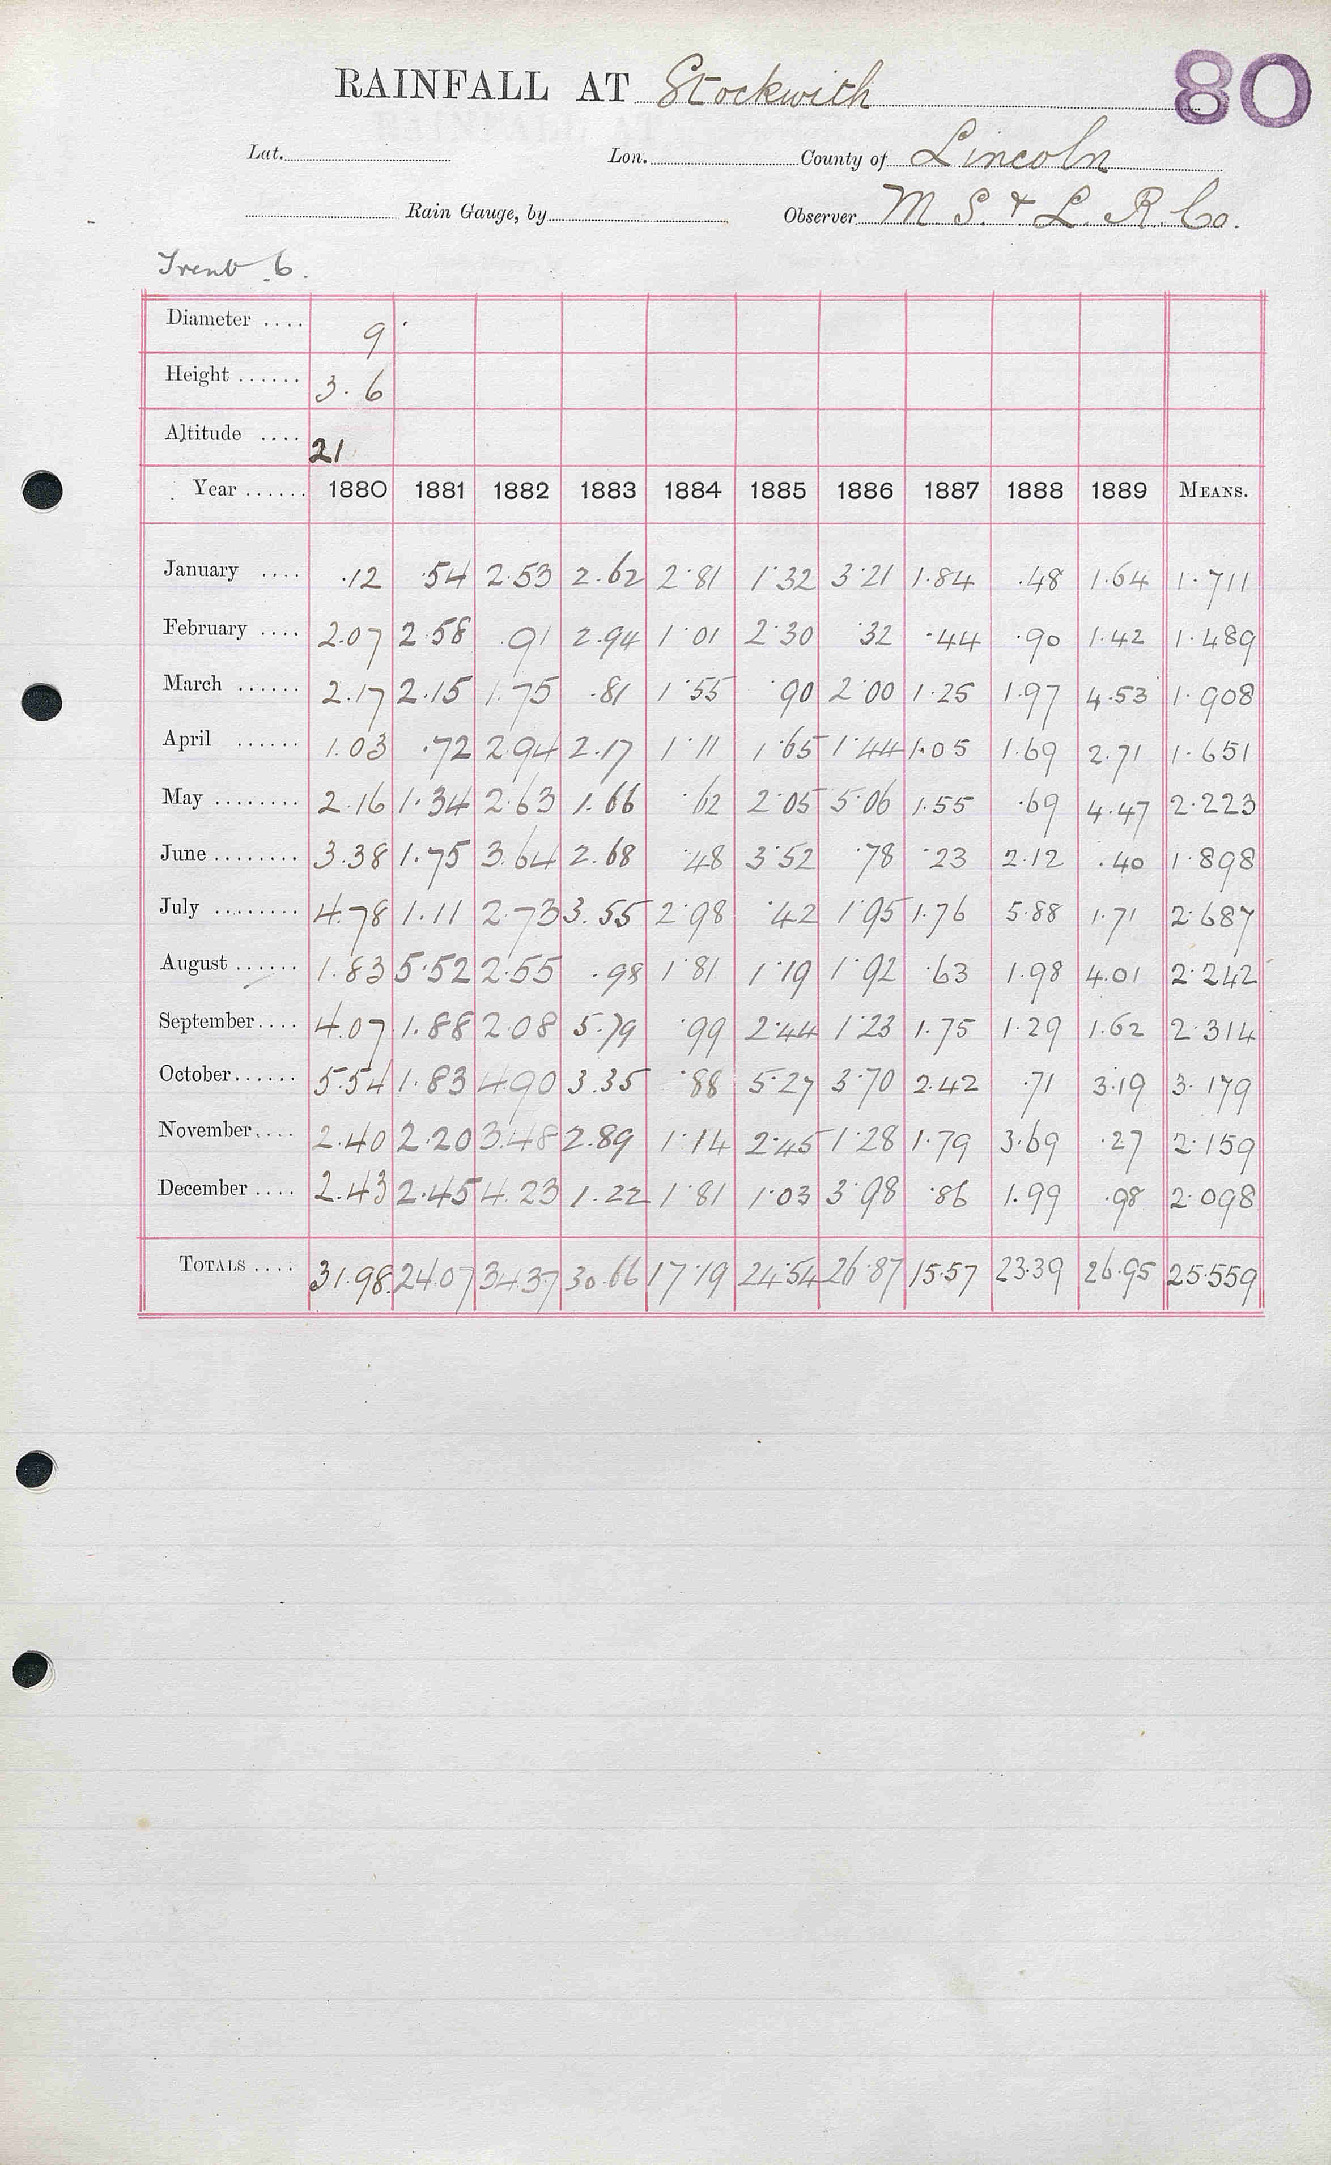 RAINFALL AT Stockwith 80
Lat. Lon. County of Lincoln
Rain Gauge, by Observer M. S. & L. R. Co.
Trent 6.
Diameter .... 9
Height ...... 3.6
Altitude .... 21
Year ...... 1880 1881 1882 1883 1884 1885 1886 1887 1888 1889 MEANS.
January .... .12 .54 2.53 2.62 2.81 1.32 3.21 1.84 .48 1.64 1.711
February .... 2.07 2.58 .91 2.94 1.01 2.30 .32 .44 .90 1.42 1.489
March ...... 2.17 2.15 1.75 .81 1.55 .90 2.00 1.25 1.97 4.53 1.908
April ...... 1.03 .72 2.94 2.17 1.11 1.65 1.44 1.05 1.69 2.71 1.651
May ........ 2.16 1.34 2.63 1.66 .62 2.05 5.06 1.55 .69 4.47 2.223
June ........ 3.38 1.75 3.64 2.68 .48 3.52 .78 .23 2.12 .40 1.898
July ........ 4.78 1.11 2.73 3.55 2.98 .42 1.95 1.76 5.88 1.71 2.687
August ...... 1.83 5.52 2.55 .98 1.81 1.19 1.92 .63 1.98 4.01 2.242
September .... 4.07 1.88 2.08 5.79 .99 2.44 1.23 1.75 1.29 1.62 2.314
October ...... 5.54 1.83 4.90 3.35 .88 5.27 3.70 2.42 .71 3.19 3.179
November .... 2.40 2.20 3.48 2.89 1.14 2.45 1.28 1.79 3.69 .27 2.159
December .... 2.43 2.45 4.23 1.22 1.81 1.03 3.98 .86 1.99 .98 2.098
TOTALS .... 31.98 24.07 34.37 30.66 17.19 24.54 26.87 15.57 23.39 26.95 25.559